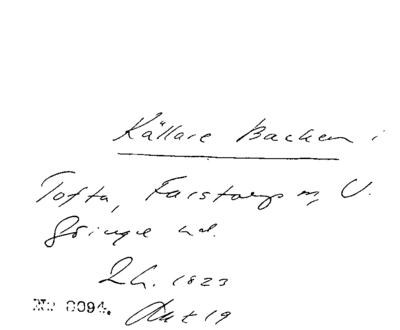 Källare Backen i
Tofta, Farstorps s, V.
Göinge hd.
Lh. 1823
No 0094. Akt 19